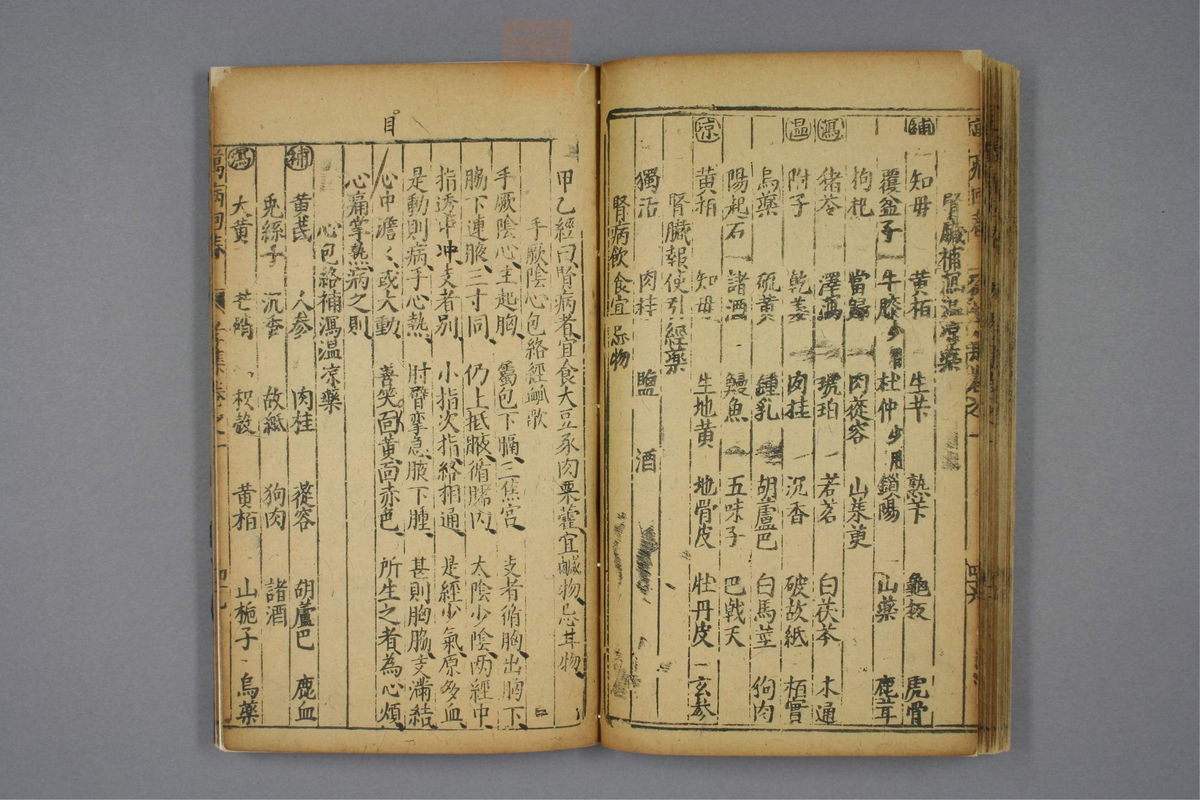 腎臟補瀉温凉藥
補 知母 黄栢 生芐 熟芐 龜板 虎骨
覆盆子 牛膝 杜仲 鎖陽 山藥 鹿茸
枸杞 當歸 肉蓯容 山茱萸
瀉 猪苓 澤瀉 琥珀 若茗 白茯苓 木通
温 附子 乾姜 肉桂 沉香 破故紙 栢實
烏藥 硫黄 鍾乳 胡蘆巴 白馬莖 狗肉
陽起石 諸酒 鰻魚 五味子 巴戟天
凉 黄栢 知母 生地黄 地骨皮 牡丹皮 玄参
腎臟報使引經藥
獨活 肉桂 鹽 酒
腎病飲食宜忌物
甲乙經曰腎病者宜食大豆豕肉栗藿宜鹹物忌甘物
手厥陰心包絡經歌
手厥陰心主起胸 屬包下膈三焦宫 支者循胸出胸下
脇下連腋三寸同 仍上抵腋循臑内 太陰少陰两經中
指透中冲支者别 小指次指絡相通 是經少氣原多血
是動則病手心熱 肘臂攣急腋下腫 甚則胸脇支滿結
心中澹々或大動 善笑目黄面赤色 所生之者為心煩
心痛掌熱病之則
心包絡補瀉温凉藥
補 黄芪 人参 肉桂 蓯容 胡蘆巴 鹿血
兎絲子 沉香 故紙 狗肉 諸酒
瀉 大黄 芒硝 枳殻 黄栢 山梔子 烏藥
目